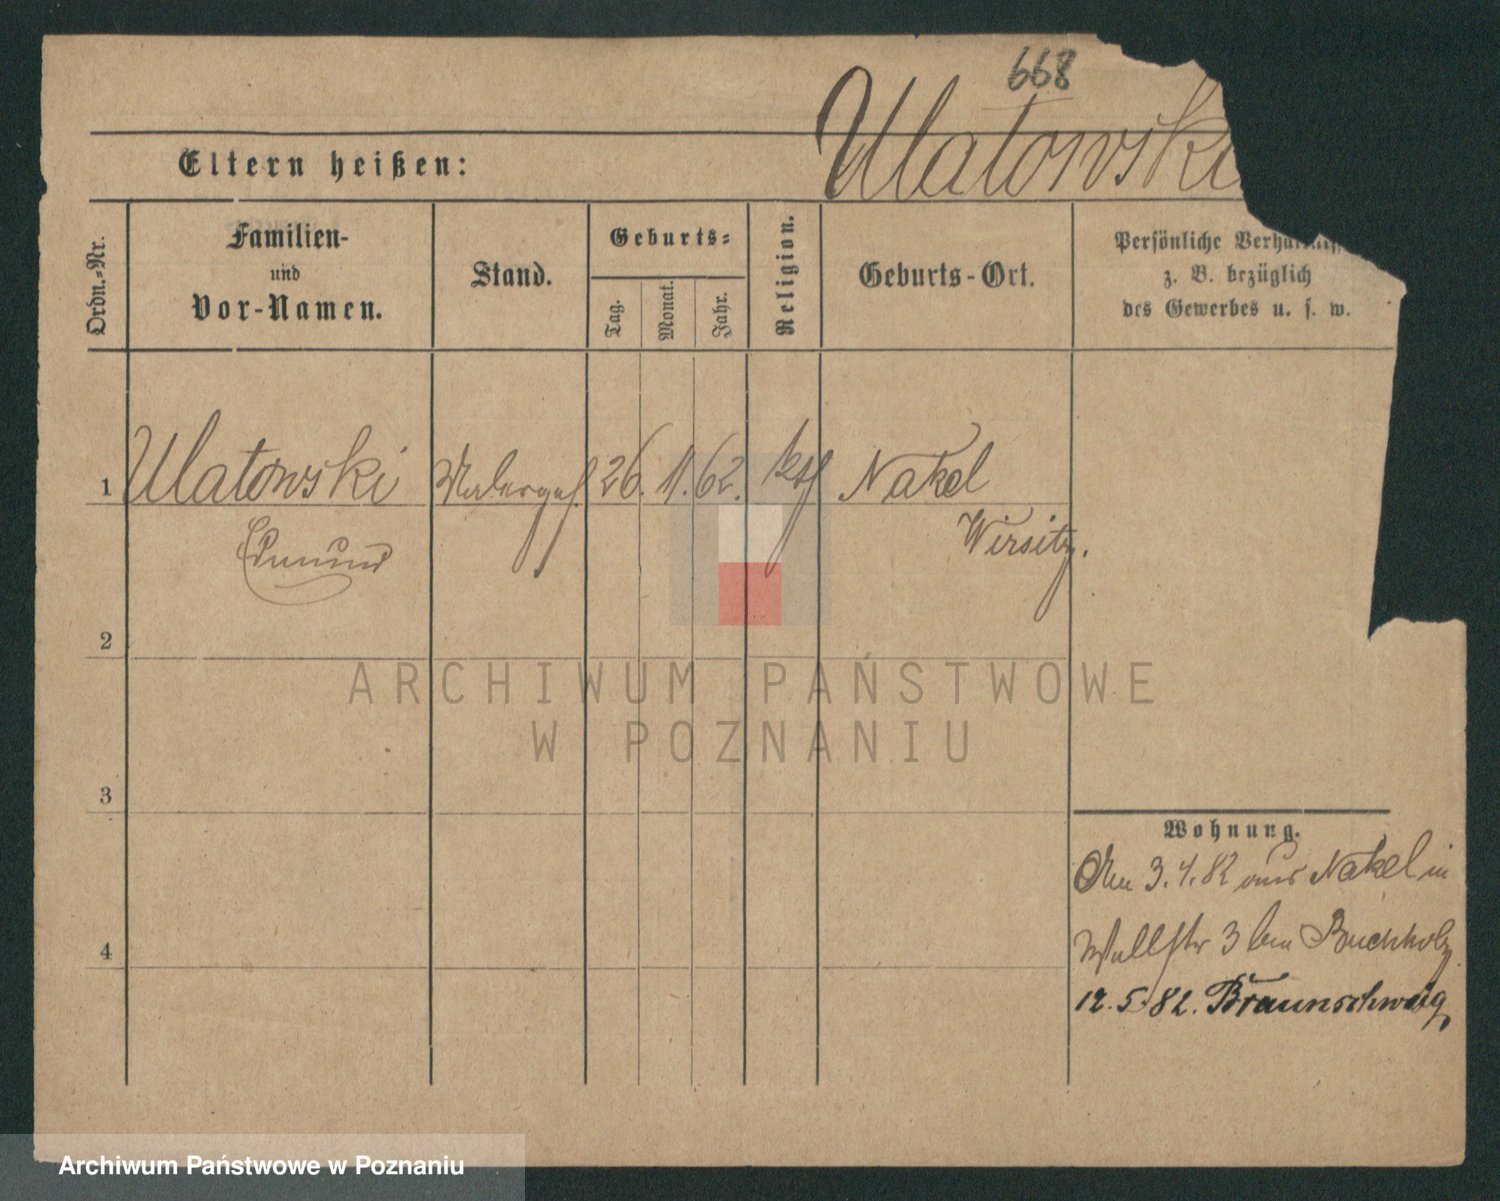 668
Ulatowski
Eltern heißen:
Ordn.-Nr.
Familien-
und
Vor-Namen.
Stand.
Geburts-
Tag.
Monat.
Jahr.
Religion.
Geburts-Ort.
Persönliche
z. B. bezüglich
des Gewerbes u. s. w.
1 Ulatowski Malergeh. 26. 11. 62. kath Nakel
Edmund
Wirsitz.
2
ARCHIWUM PAŃSTWOWE
W POZNANIU
3
Wohnung.
3.4.82 aus Nakel in
Wallstr 3 bei Buchholz
4
12.5.82. Braunschweig
Archiwum Państwowe w Poznaniu